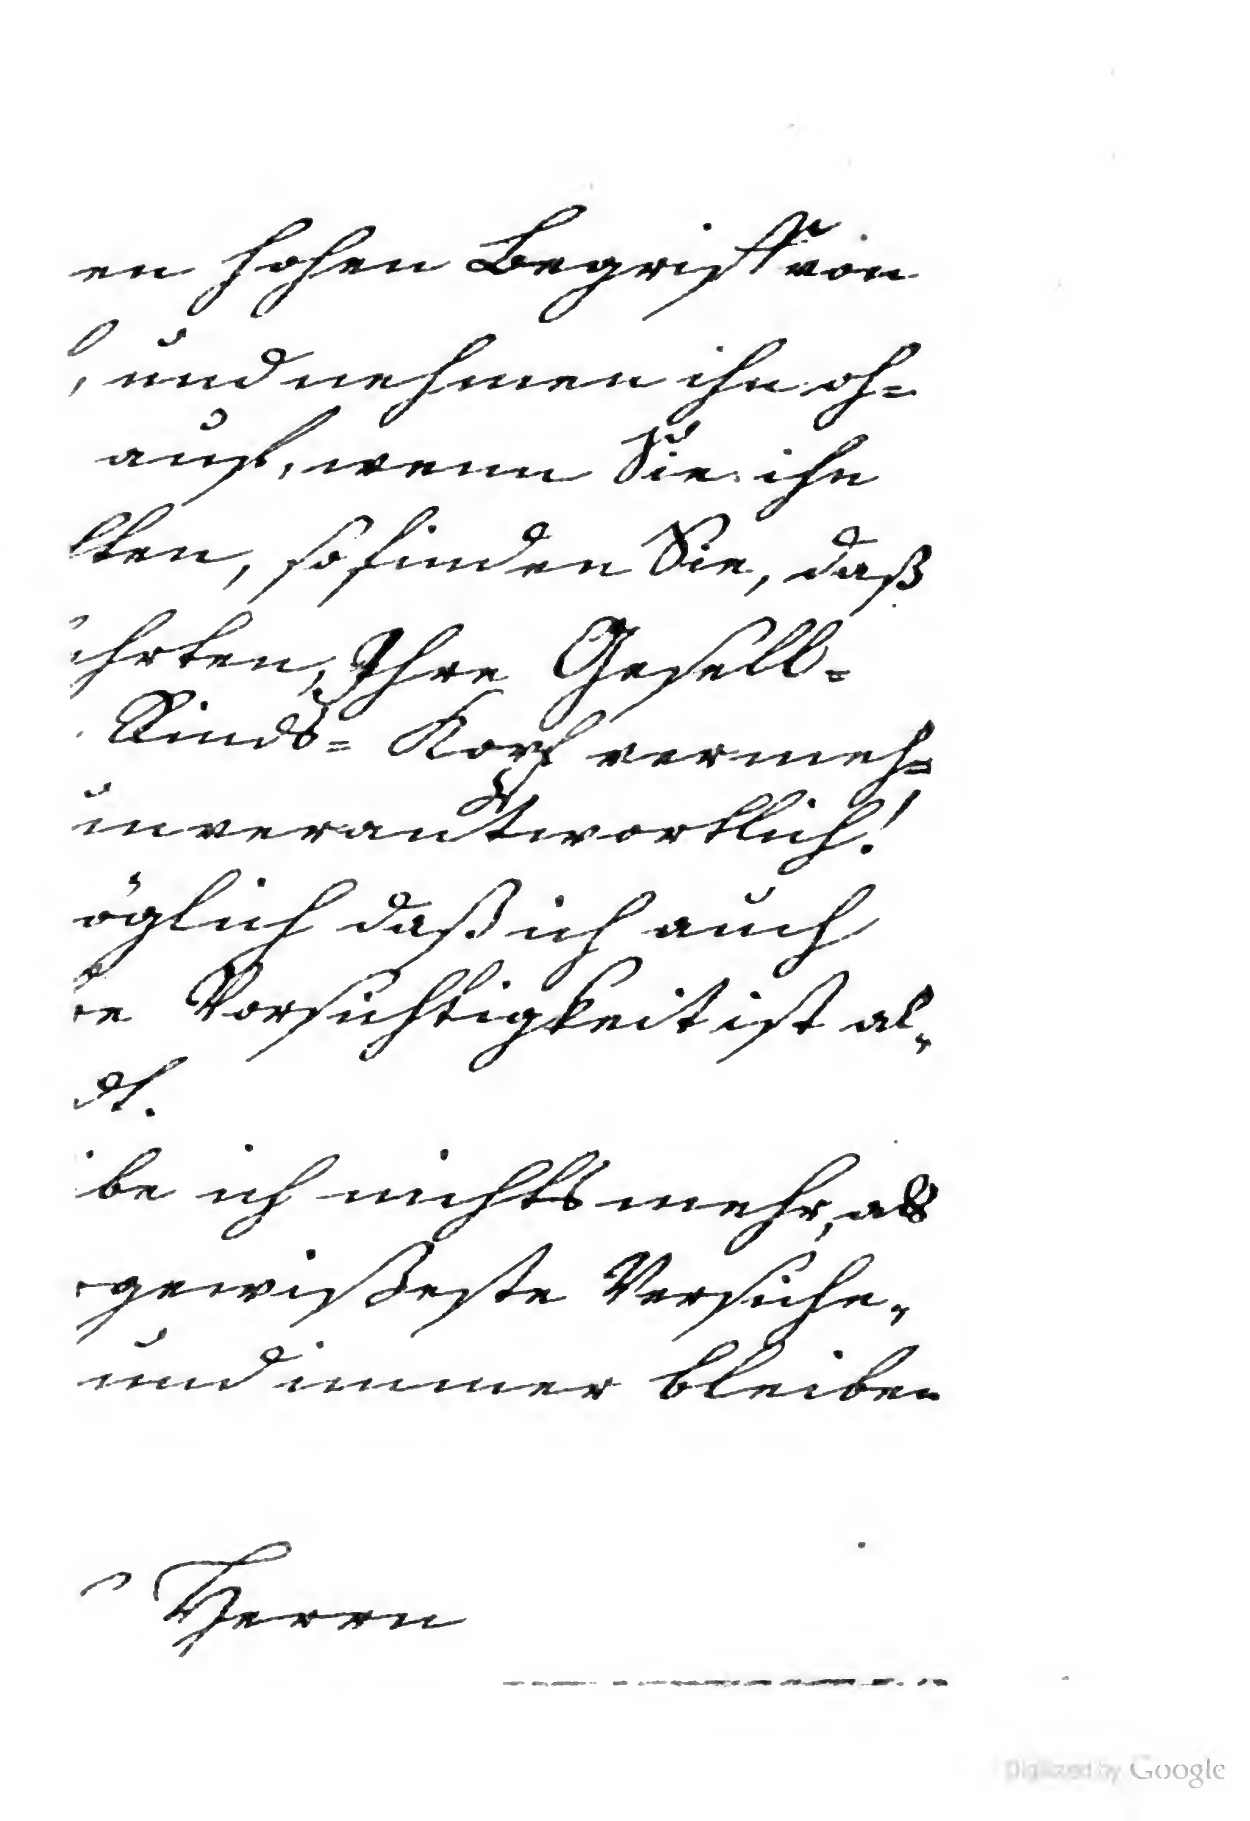 en hohen Begriff von
, und nehmen ihn oh=
auf, wenn Sie ihn
lten, so finden Sie, daß
ehrten, Ihre Gesell=
Rinds= Kopf vermeh=
unverantwortlich!
öglich daß ich auch
re Vorsichtigkeit ist al„
dl.
be ich nichts mehr, als
gewißeste Versiche„
und immer bleiben
Herrn
Digitized by Google